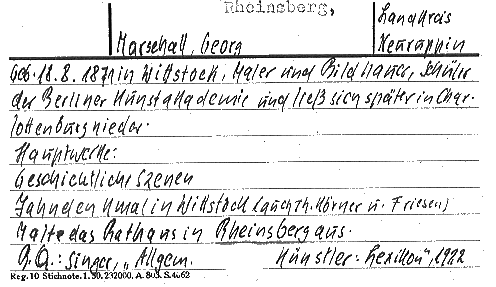 Rheinsberg,
Landkreis
Neuruppin
Marschall, Georg
Geb. 18.8.1871 in Wittstock; Maler und Bildhauer, Schüler
der Berliner Kunstakademie und ließ sich später in Char-
lottenburg nieder.
Hauptwerke:
Geschichtliche Szenen
Jahndenkmal in Wittstock (auch Th. Körner u. Friesen)
Malte das Rathaus in Rheinsberg aus.
Q.A.: Singer, „Allgem. Künstler-Lexikon", 1922
Reg. 10 Stichnote. 1. 30. 232000. A. 803. S. 4062